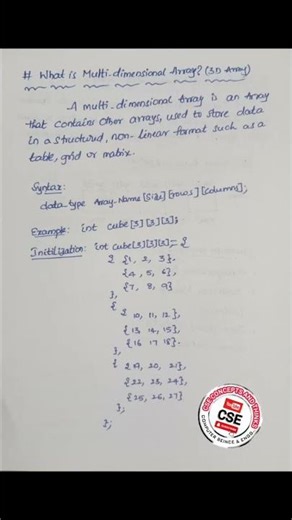 # What is Multi-dimensional Array? (3D Array)
A multi-dimensional Array is an Array
that contains other arrays, used to store data
in a structured, non-linear format such as a
table, grid or matrix.
Syntax:
data-type Array-Name[Size][rows][columns];
Example: int cube[3][3][3];
Initilization: int cube[3][3][3] = {
{ {1, 2, 3}.
{4, 5, 6},
{7, 8, 9}
},
{
{ 10, 11, 12},
{13 14, 15},
{16 17 18}.
},
{ {19, 20, 21},
{22, 23, 24},
{25, 26, 27}
};
};
CSE CONCEPTS AND THINKS
CSE
COMPUTER SCIENCE & ENGG